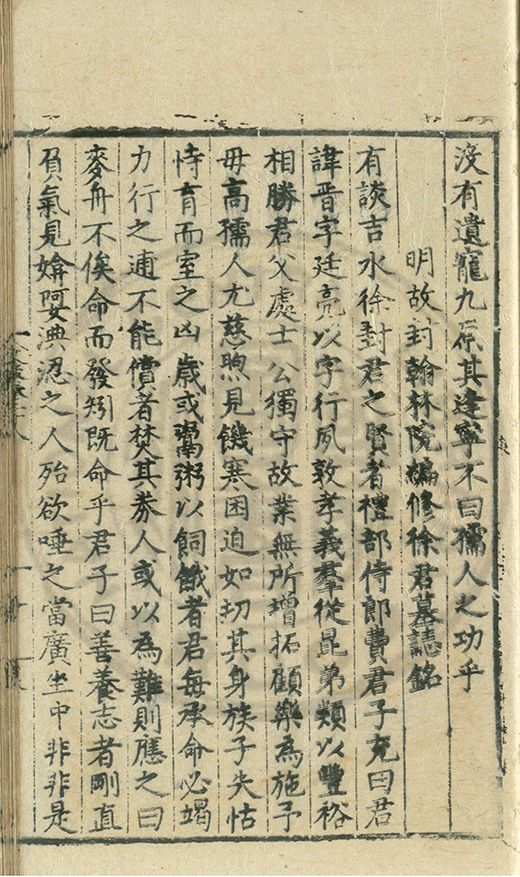 沒有遺寵九原其逢寧不曰孺人之功乎
明故封翰林院編修徐君墓誌銘
有談吉水徐封君之賢者禮部侍郎費君子充曰君
諱晋字廷亮以字行夙敦孝義羣從昆弟類以豐裕
相勝君父處士公獨守故業無所增拓顧樂為施予
毋高孺人尤慈煦見饑寒困迫如切其身族子失怙
恃育而室之凶歲或鬻粥以飼餓者君每承命必竭
力行之逋不能償者焚其券人或以為難則應之曰
麥舟不俟命而發矧既命乎君子曰善養志者剛直
負氣見媕婀淟涊之人殆欲唾之當廣坐中非非是